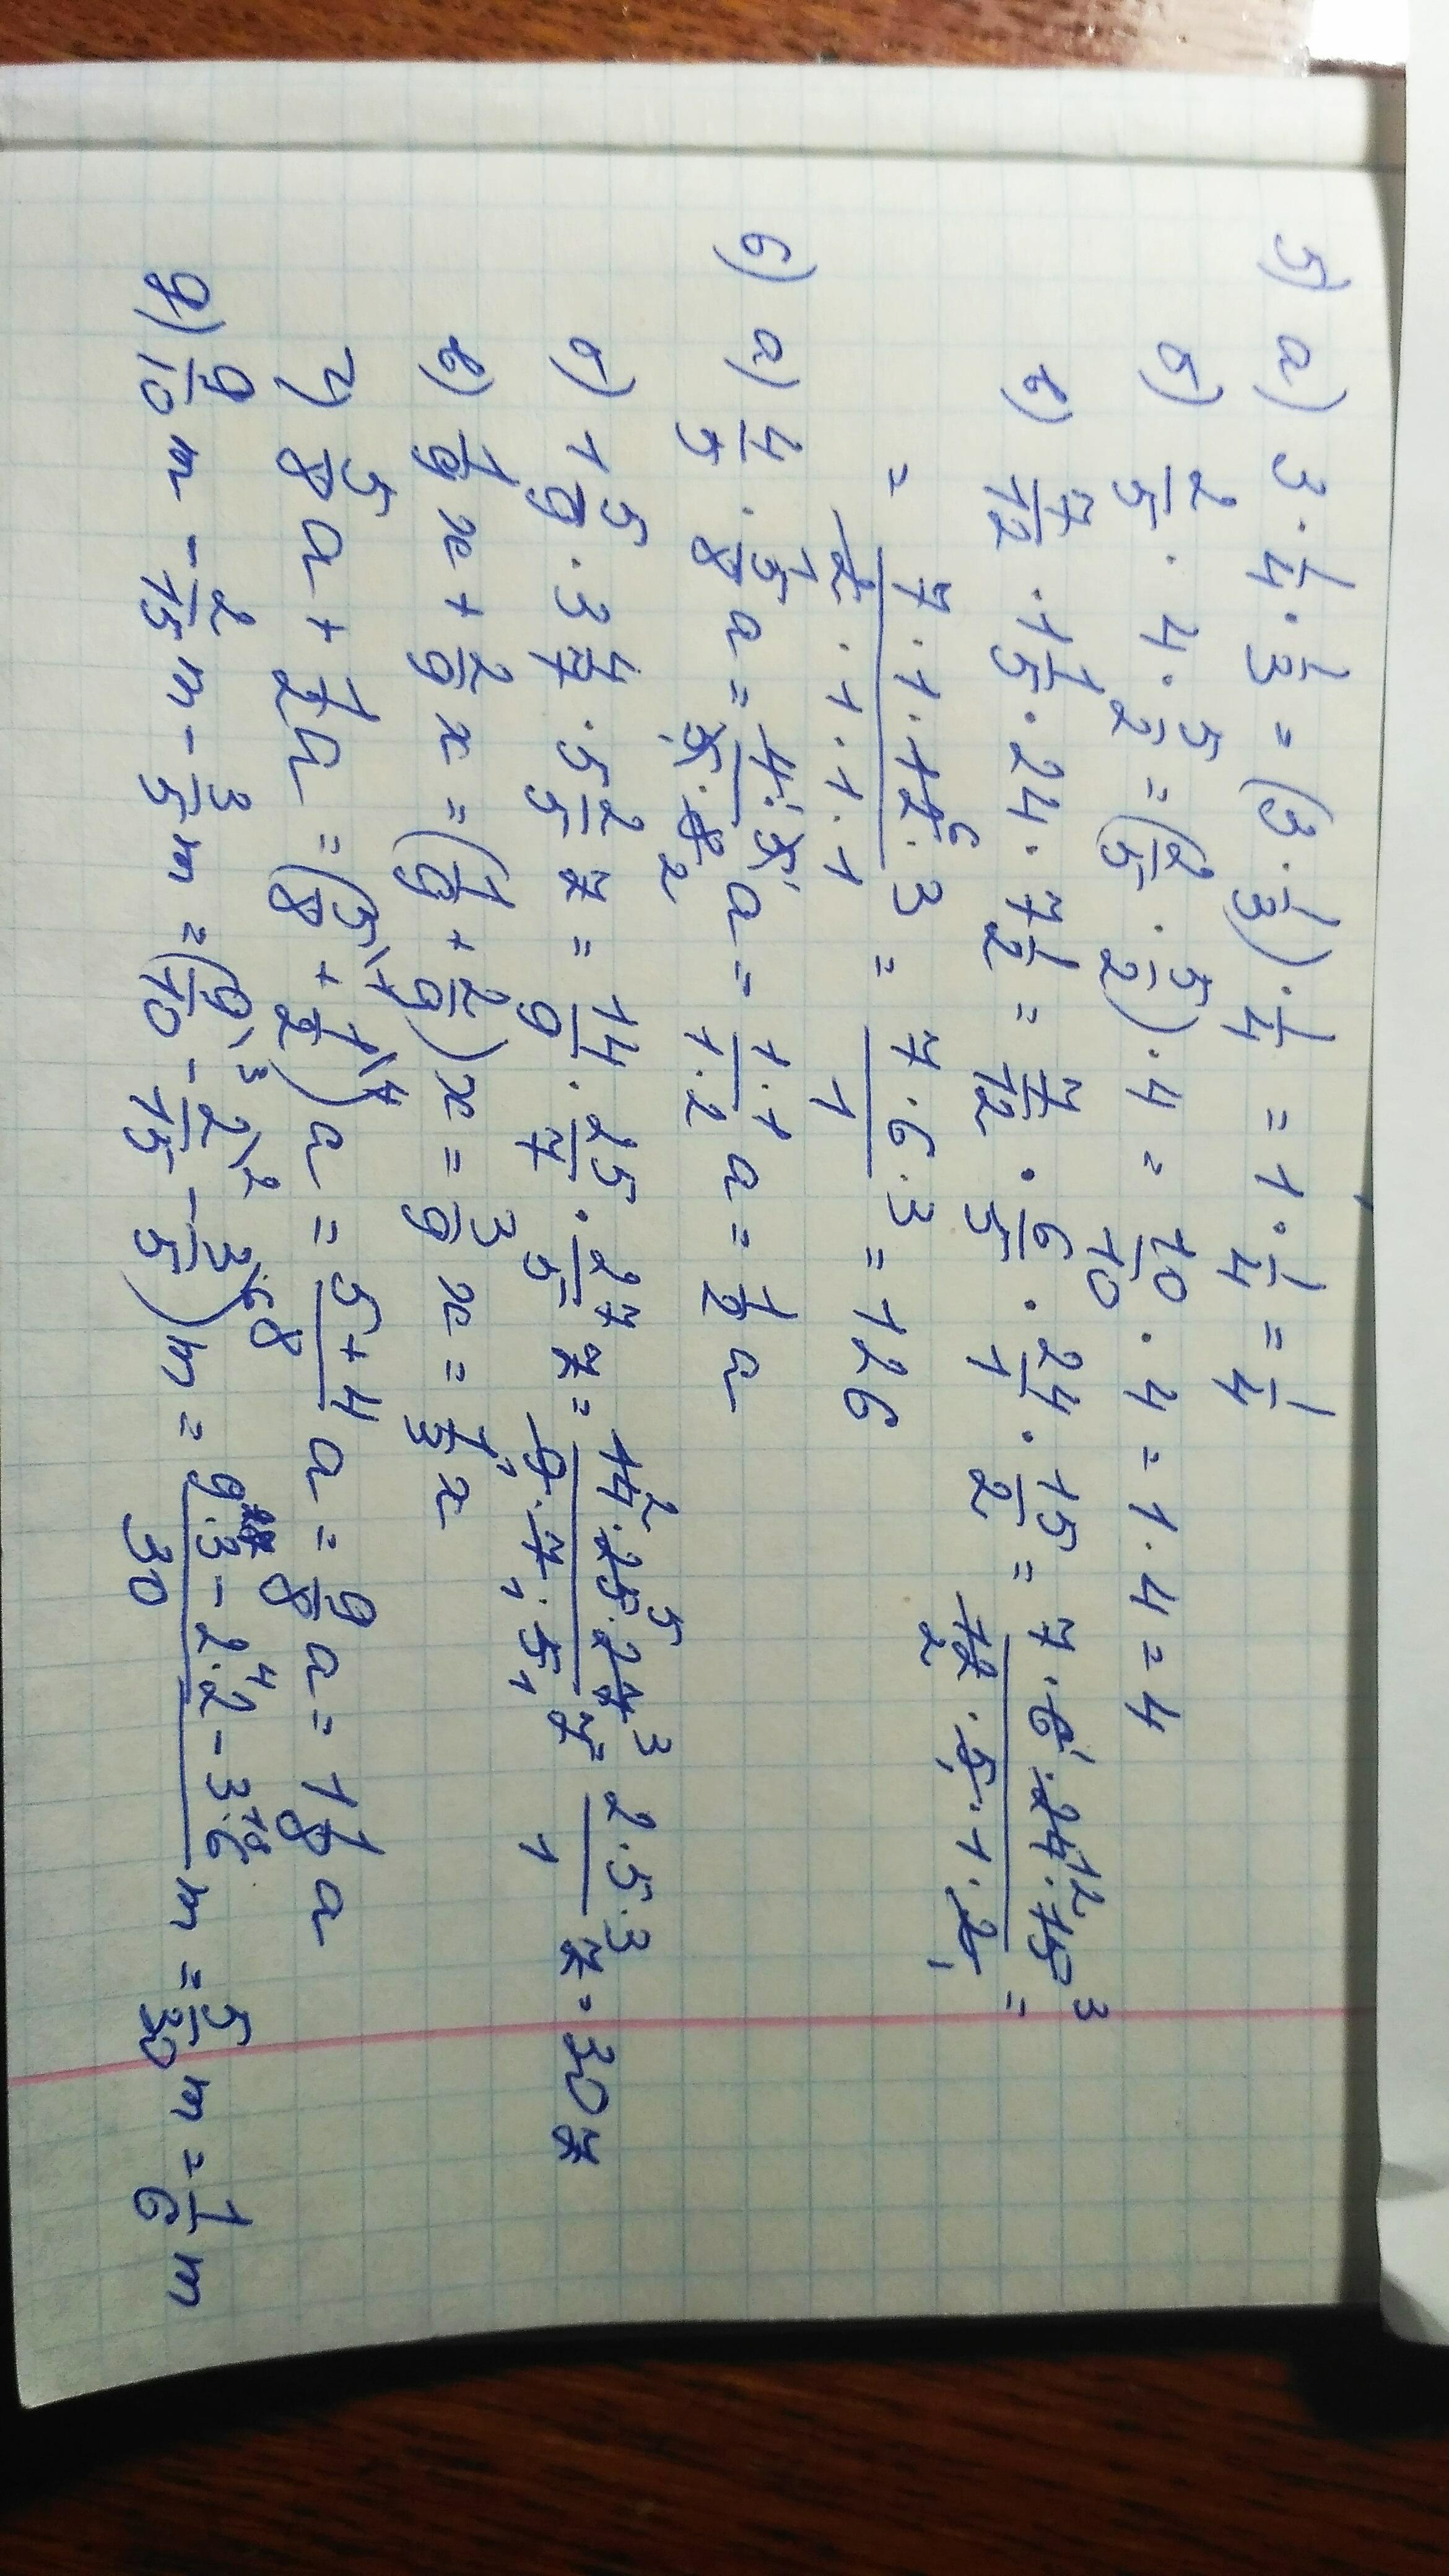 5) а) 3 · 1/4 · 1/3 = (3 · 1/3) · 1/4 = 1 · 1/4 = 1/4
б) 2/5 · 4 · 5/2 = (2/5 · 5/2) · 4 = 10/10 · 4 = 1 · 4 = 4
в) 7/12 · 1 1/5 · 24 · 7 1/2 = 7/12 · 6/5 · 24/1 · 15/2 = 7 · 6 · 24 · 15 / 12 · 5 · 1 · 2 =
= 7 · 1 · 12 · 3 / 2 · 1 · 1 · 1 = 7 · 6 · 3 / 1 = 126
6) а) 4/5 · 5/8 a = 4 · 5 / 5 · 8 a = 1 · 1 / 1 · 2 a = 1/2 a
б) 1 5/9 · 3 4/7 · 5 2/5 z = 14/9 · 25/7 · 27/5 z = 14 · 25 · 27 / 9 · 7 · 5 z = 2 · 5 · 3 / 1 z = 30 z
в) 1/9 x + 2/9 x = (1/9 + 2/9) x = 3/9 x = 1/3 x
г) 5/8 a + 1/2 a = (5/8 + 1/2) a = 5+4 / 8 a = 9/8 a = 1 1/8 a
д) 9/10 m - 2/15 m - 3/5 m = (9/10 - 2/15 - 3/5) m = 9 · 3 - 2 · 2 - 3 · 6 / 30 m = 5/30 m = 1/6 m